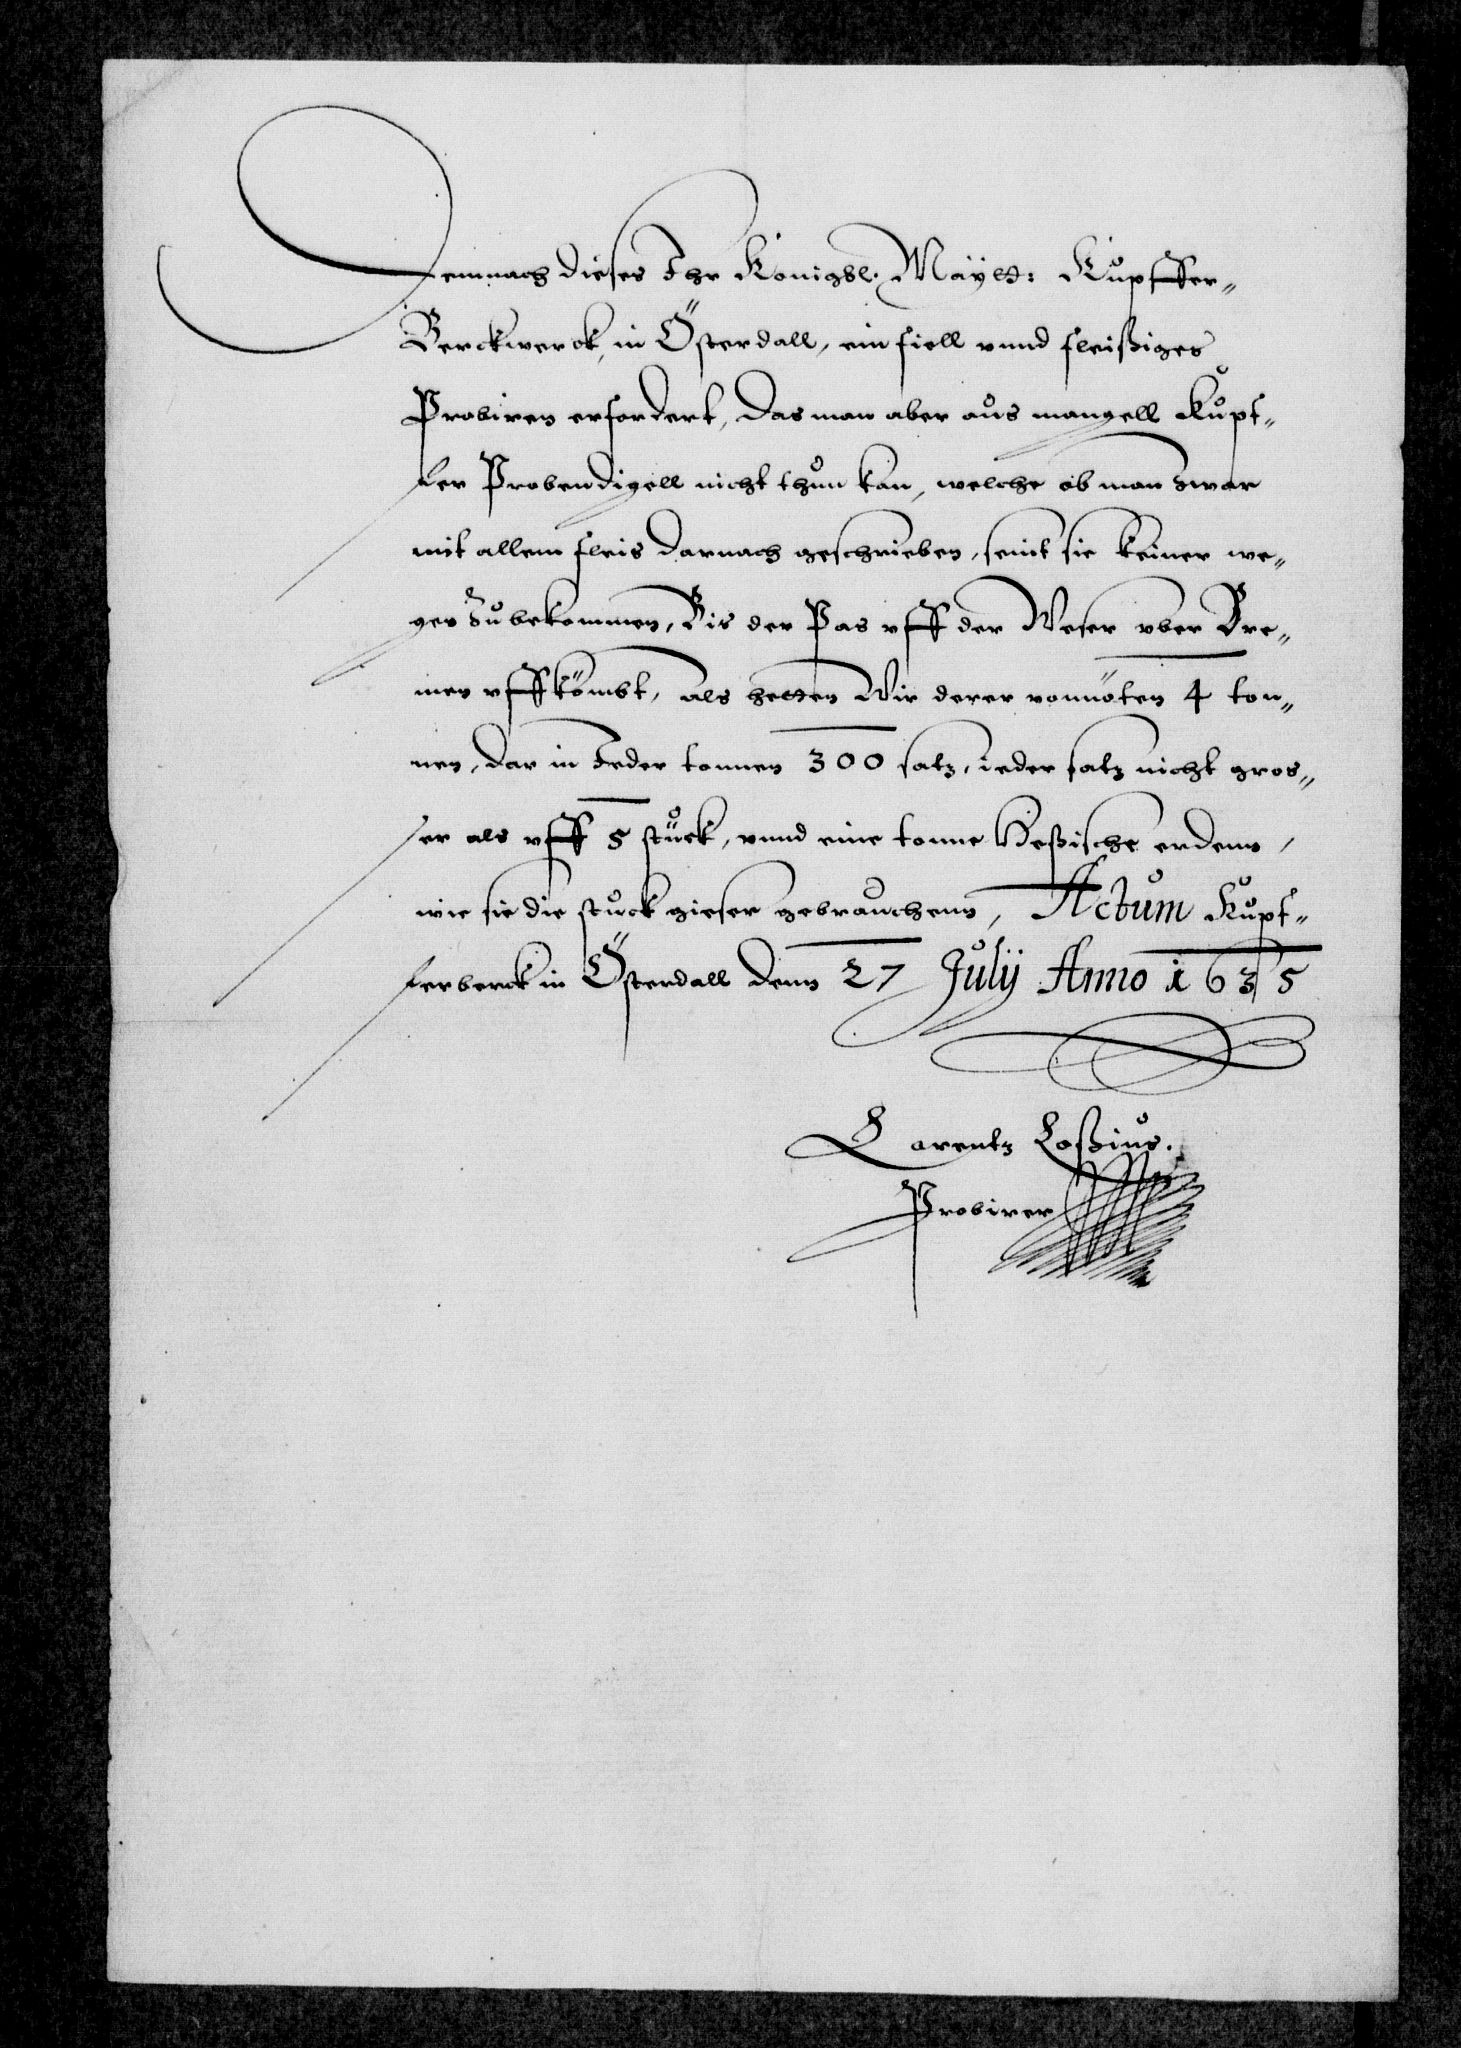 Demnach dieses Ihr Königsl. Mäyett: Kupffer„
Berckwerck, in Österdall, ein fiell vnnd fleißiges
Probiren erfordert, das man aber aus mangell Kupf„
fer Probendigell nicht thun kan, welche ob man zwar
mit allem fleis darnach geschrieben, seint sie keiner we„
ges zu bekommen, Bis der Pas vff der Weser vber Bre„
men vffkömbt, als hetten Wir derer vonnöten 4 ton„
nen, dar in Jeder tonnen 300 satz, ieder satz nicht gros„
ser als vff 5 stück, vnnd eine tonne Heßische erdenn,
wie sie die stuck gieser gebrauchenn, Actum Kupf„
ferberck in Österdall denn 27 Julij Anno 1635
Larentz Loßius.
Probirer